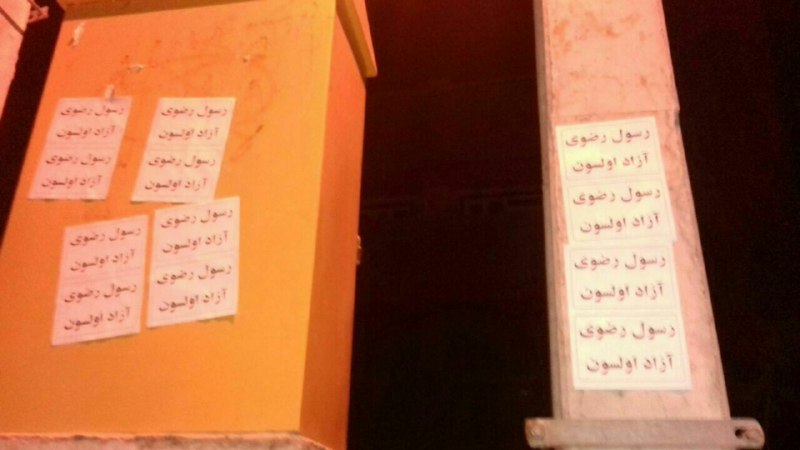 رسول رضوی
آزاد اولسون
رسول رضوی
آزاد اولسون
رسول رضوی
آزاد اولسون
رسول رضوی
آزاد اولسون
رسول رضوی
آزاد اولسون
رسول رضوی
آزاد اولسون
رسول رضوی
آزاد اولسون
رسول رضوی
آزاد اولسون
رسول رضوی
آزاد اولسون
رسول رضوی
آزاد اولسون
رسول رضوی
آزاد اولسون
رسول رضوی
آزاد اولسون